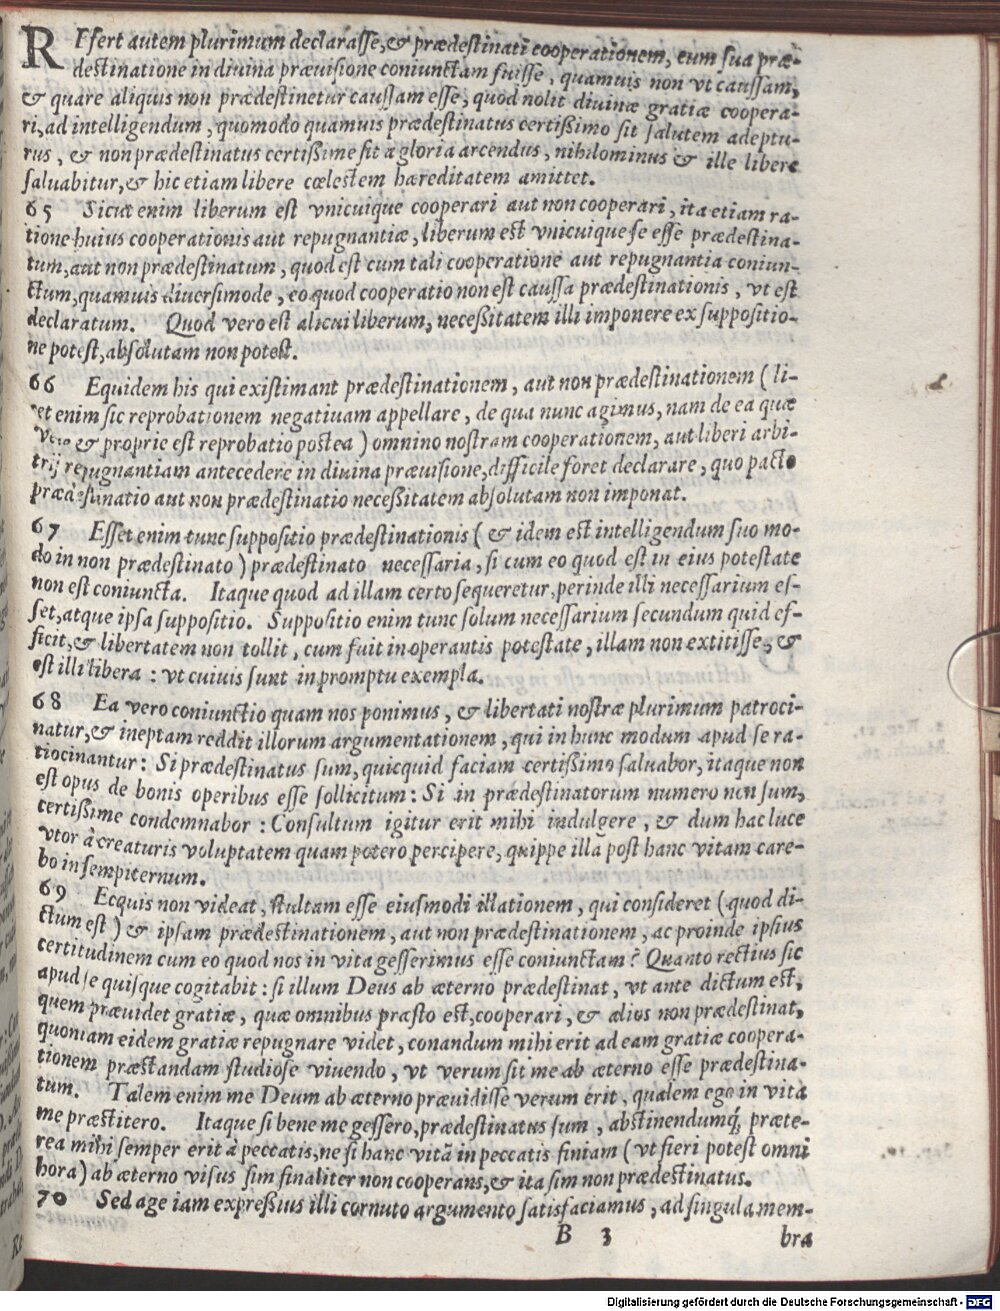 REfert autem plurimum declarasse, & prædestinati cooperationem, cum sua præ-
destinatione in diuina præuisione coniunctam fuisse, quamuis non vt caussam,
& quare aliquis non prædestinetur caussam esse, quod nolit diuinæ gratiæ coopera-
ri, ad intelligendum, quomodo quamuis prædestinatus certißimo sit salutem adeptu-
rus, & non prædestinatus certißime sit à gloria arcendus, nihilominus & ille libere
saluabitur, & hic etiam libere cœlestem hæreditatem amittet.
65 Sicut enim liberum est vnicuique cooperari aut non cooperari, ita etiam ra-
tione huius cooperationis aut repugnantiæ, liberum est vnicuique se esse prædestina-
tum, aut non prædestinatum, quod est cum tali cooperatione aut repugnantia coniun-
ctum, quamuis diuersimode, eo quod cooperatio non est caussa prædestinationis, vt est
declaratum. Quod vero est alicui liberum, neceßitatem illi imponere ex suppositio-
ne potest, absolutam non potest.
66 Equidem his qui existimant prædestinationem, aut non prædestinationem (li-
cet enim sic reprobationem negatiuam appellare, de qua nunc agimus, nam de ea quæ
vere & proprie est reprobatio postea) omnino nostram cooperationem, aut liberi arbi-
trij repugnantiam antecedere in diuina præuisione, difficile foret declarare, quo pacto
prædestinatio aut non prædestinatio neceßitatem absolutam non imponat.
67 Esset enim tunc suppositio prædestinationis (& idem est intelligendum suo mo-
do in non prædestinato) prædestinato necessaria, si cum eo quod est in eius potestate
non est coniuncta. Itaque quod ad illam certo sequeretur, perinde illi necessarium es-
set, atque ipsa suppositio. Suppositio enim tunc solum necessarium secundum quid ef-
ficit, & libertatem non tollit, cum fuit in operantis potestate, illam non extitisse, &
est illi libera: vt cuiuis sunt in promptu exempla.
68 Ea vero coniunctio quam nos ponimus, & libertati nostræ plurimum patroci-
natur, & ineptam reddit illorum argumentationem, qui in hunc modum apud se ra-
tiocinantur: Si prædestinatus sum, quicquid faciam certißimo saluabor, itaque non
est opus de bonis operibus esse sollicitum: Si in prædestinatorum numero non sum,
certißime condemnabor: Consultum igitur erit mihi indulgere, & dum hac luce
vtor à creaturis voluptatem quam potero percipere, quippe illa post hanc vitam care-
bo in sempiternum.
69 Ecquis non videat, stultam esse eiusmodi illationem, qui consideret (quod di-
ctum est) & ipsam prædestinationem, aut non prædestinationem, ac proinde ipsius
certitudinem cum eo quod nos in vita gesserimus esse coniunctam? Quanto rectius sic
apud se quisque cogitabit: si illum Deus ab æterno prædestinat, vt ante dictum est,
quem præuidet gratiæ, quæ omnibus præsto est, cooperari, & alios non prædestinat,
quoniam eidem gratiæ repugnare videt, conandum mihi erit ad eam gratiæ coopera-
tionem præstandam studiose viuendo, vt verum sit me ab æterno esse prædestina-
tum. Talem enim me Deum ab æterno præuidisse verum erit, qualem ego in vita
me præstitero. Itaque si bene me gessero, prædestinatus sum, abstinendumq́, præte-
rea mihi semper erit à peccatis, ne si hanc vitā in peccatis finiam (vt fieri potest omni
hora) ab æterno visus sim finaliter non cooperans, & ita sim non prædestinatus.
70 Sed age iam expreßius illi cornuto argumento satisfaciamus, ad singula mem-
B 3 bra
Digitalisierung gefördert durch die Deutsche Forschungsgemeinschaft - DFG